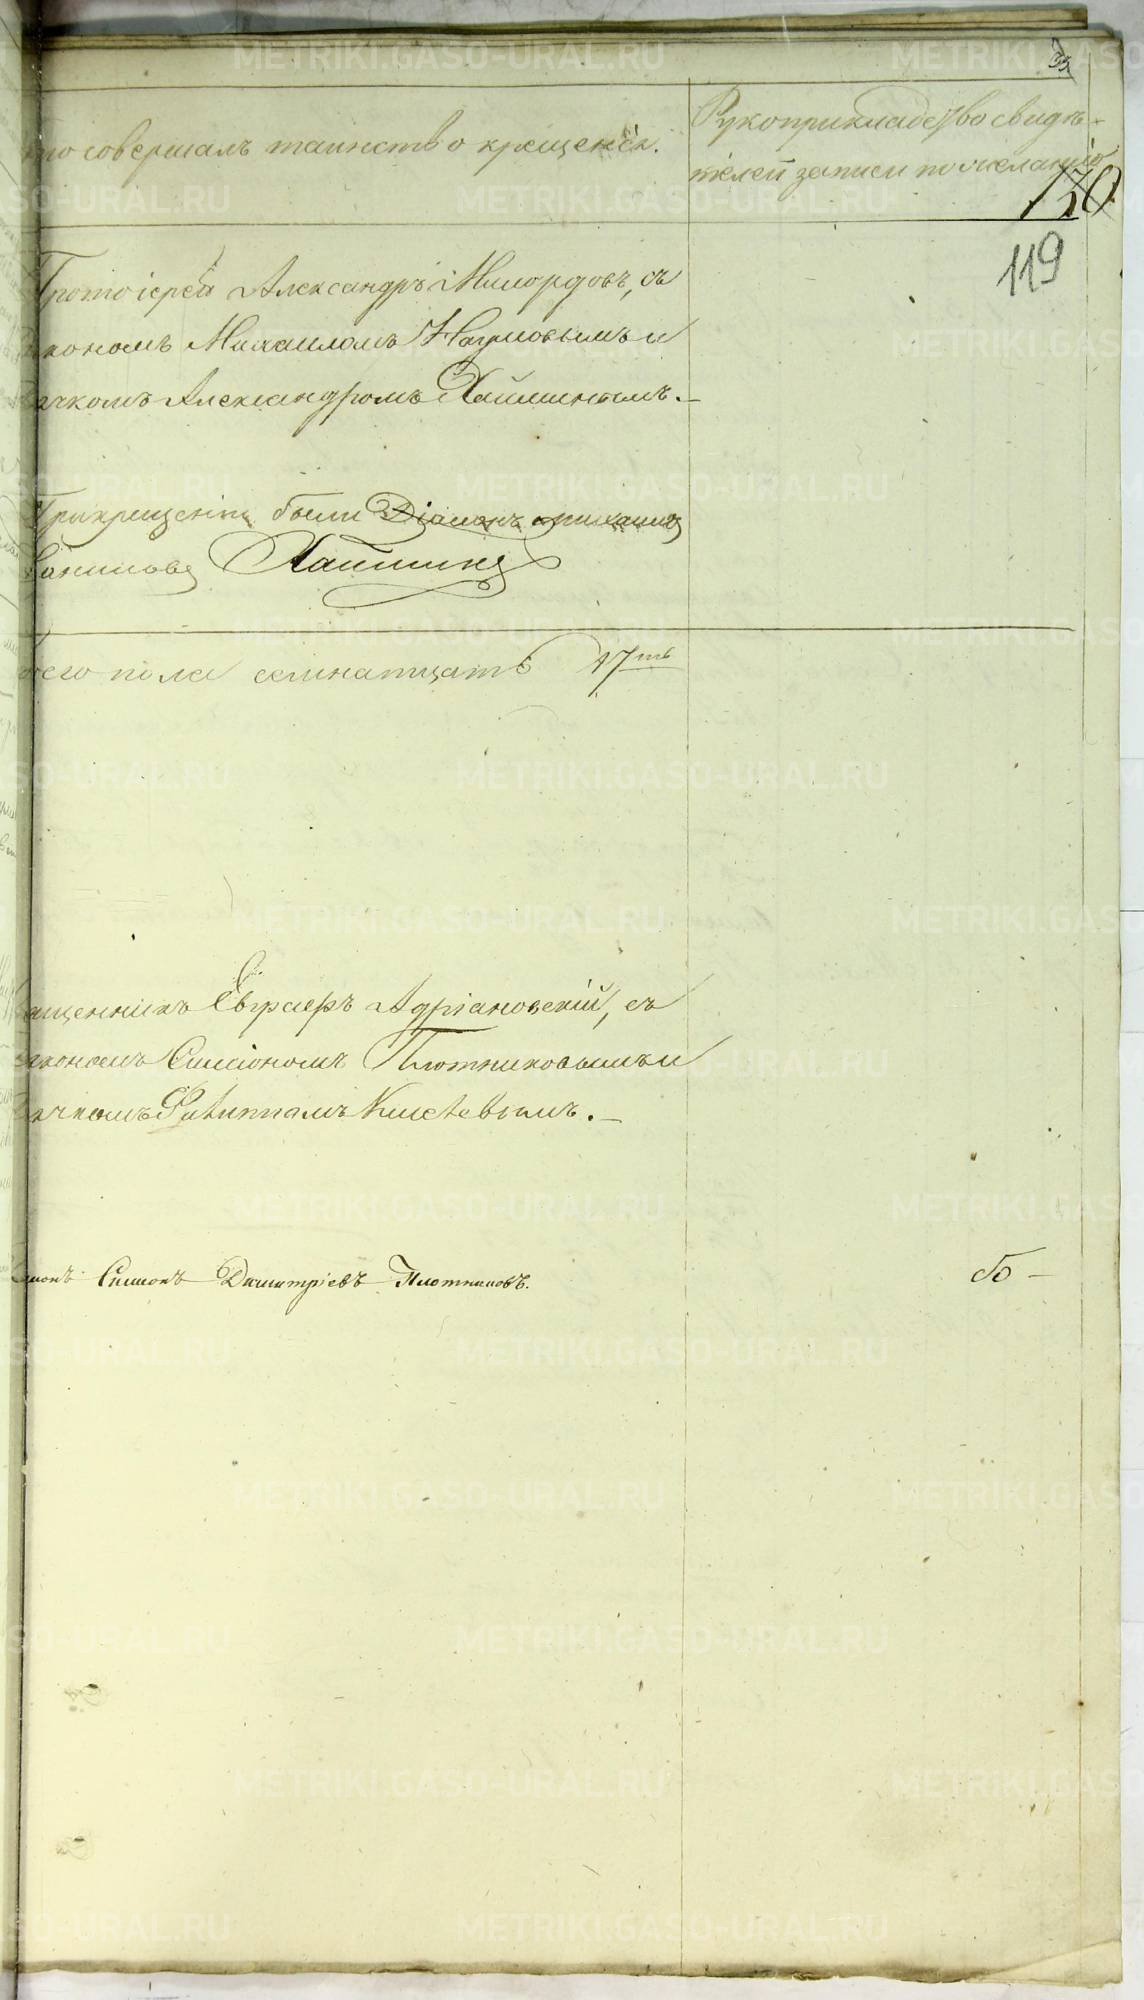 то совершалъ таинство крещенія.
Рукоприкладство свидѣ-
телей записи по желанію
120
119
Протоіерей Александръ Милордовъ, съ
акономъ Михаиломъ Наумовымъ и
ячкомъ Александромъ Хайминымъ.
При крещеніи были Діаконъ Михаилъ
Хайминъ
ского пола семнатцать 17ть
ященникъ Евграфъ Адріановскій, съ
аконовъ Симіономъ Плотниковымъ и
ячкомъ Филиппомъ Кисѣевымъ.
аконъ Симионъ Димитріевъ Плотниковъ.
METRIKI.GASO-URAL.RU